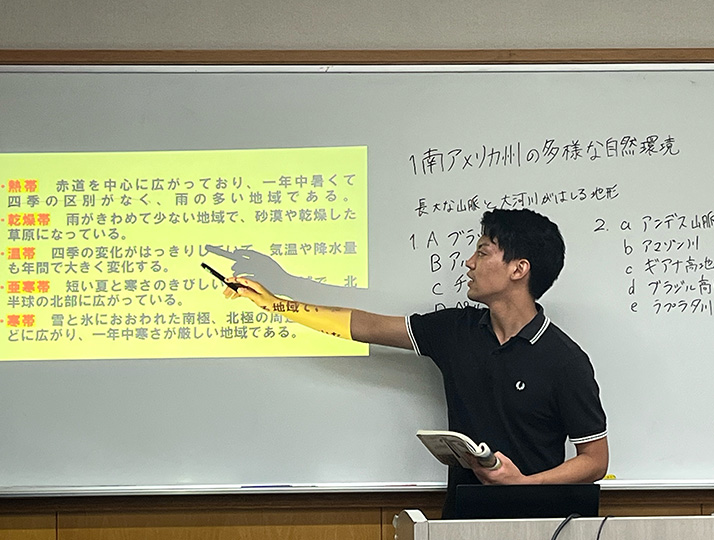 ・熱帯　赤道を中心に広がっており、一年中暑くて
四季の区別がなく、雨の多い地域である。
・乾燥帯　雨がきわめて少ない地域で、砂漠や乾燥した
草原になっている。
・温帯　四季の変化がはっきりしていて、気温や降水量
も年間で大きく変化する。
・亜寒帯　短い夏と寒さのきびしい 北
半球の北部に広がっている。 地域で
・寒帯　雪と氷におおわれた南極、北極の周
どに広がり、一年中寒さが厳しい地域である。
1 南アメリカ州の多様な自然環境
長大な山脈と大河川がはしる地形
1 A ブラ
B ア
C チ
D
2. a アンデス山脈
b アマゾン川
c ギアナ高地
d ブラジル高
e ラプラタ川